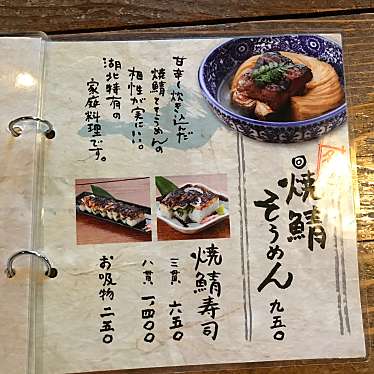 甘辛く炊き込んだ
焼鯖とそうめんの
相性が実にいい。
湖北特有の
家庭料理です。
焼鯖そうめん 九五〇
焼鯖寿司
三貫 六五〇
八貫 一、四〇〇
お吸物 二五〇